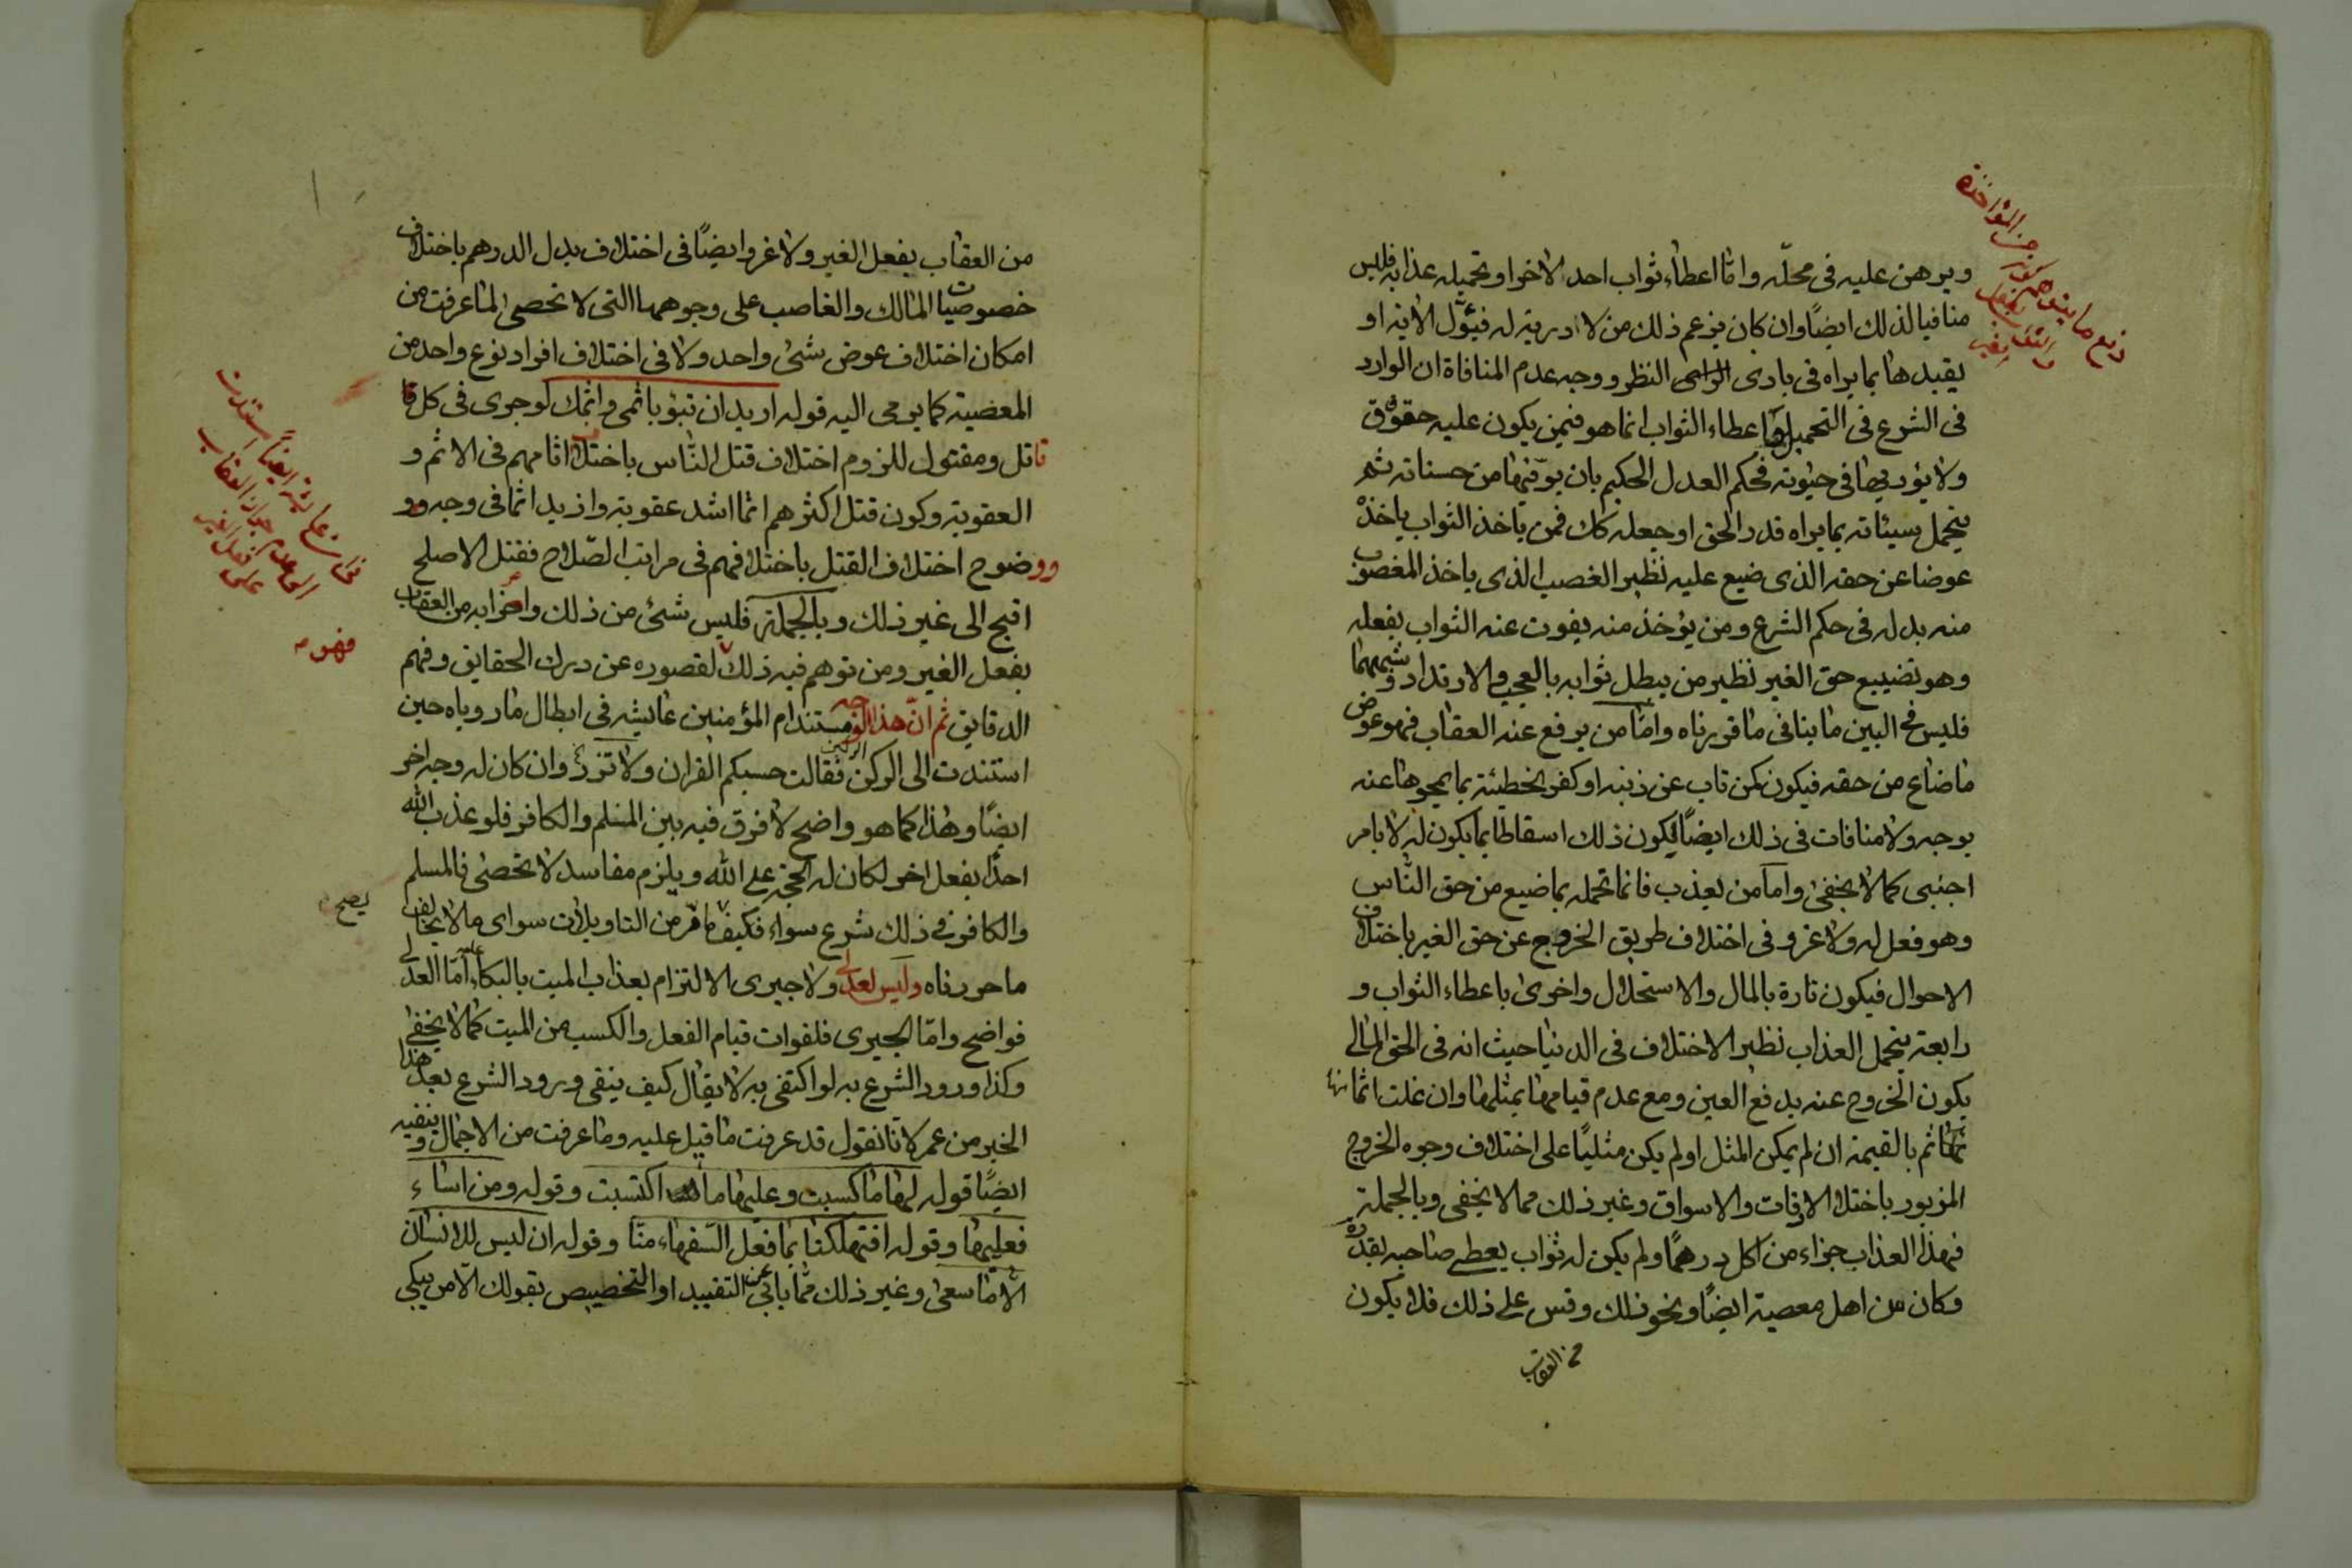 ويبرهن عليه فى محلّه وامّا اعطاء ثواب احد لاخر او تحميله عذابه فليس
منافيا لذلك ايضًا وان كان يزعم ذلك من لا دربة له فيئوّل الاية او
يقيدها بما يراه فى بادى النظر ووجه عدم المنافاة ان الوارد
فى الشرع فى التحميل واعطاء الثواب انما هو فيمن يكون عليه حقوق
ولا يؤديها فى حيوته فحكم العدل الحكيم بان يوفيها من حسناته ثم
يتحمل سيئاته بما يراه قدر الحق او جعله كك فمن ياخذ الثواب ياخذه
عوضا عن حقه الذى ضيع عليه نظير الغصب الذى ياخذ المغصوب
منه بدله فى حكم الشرع ومن يؤخذ منه يفوت عنه الثواب بفعله
وهو تضييع حق الغير نظير من يبطل ثوابه بالعجب والارتداد وشبههما
فليس فى البين ما ينافى ما قررناه وامّا من يرفع عنه العقاب فهو عوض
ما ضاع من حقه فيكون كمن تاب عن ذنبه او كفر بخطيئة بما يمحوها عنه
بوجه ولا منافات فى ذلك ايضًا ليكون ذلك اسقاطا بما يكون له لا بامر
اجنبى كما لا يخفى وامّا من يعذب فانما تحمله بما ضيع من حق الناس
وهو فعل له ولا غرو فى اختلاف طريق الخروج عن حق الغير باختلاف
الاحوال فيكون تارة بالمال والاستحلال واخرى باعطاء الثواب و
رابعة بتحمل العذاب نظير الاختلاف فى الدنيا حيث انه فى الحق المالى
يكون الخروج عنه بدفع العين ومع عدم قيامها بمثلها وان غلت اثمانها
ثم بالقيمة ان لم يمكن المثل او لم يكن مثليًا على اختلاف وجوه الخروج
المزبور باختلاف الاوقات والاسواق وغير ذلك مما لا يخفى وبالجملة
فهذا العذاب جزاء من اكل درهمًا ولم يكن له ثواب يعطى صاحبه بقدره
وكان من اهل معصية ايضًا ونحو ذلك وقس على ذلك فلا يكون
من العقاب
دفع ما يتوهم من المؤاخذة
من العقاب بفعل الغير ولا غرو ايضًا فى اختلاف بدل الدرهم باختلاف
خصوصيات المالك والغاصب على وجوهها التى لا تحصى لما عرفت من
امكان اختلاف عوض شئ واحد ولا فى اختلاف افراد نوع واحد من
المعصية كما يومى اليه قوله اريد ان تبوء باثمى واثمك لو جرى فى كل قا
قاتل ومقتول للزوم اختلاف قتل الناس باختلاف اثامهم فى الاثم و
العقوبة وكون قتل اكثرهم اثما اشد عقوبة وازيد اثما فى وجه وو
ووضوح اختلاف القتل باختلافهم فى مراتب الصّلاح فقتل الاصلح
اقبح الى غير ذلك وبالجملة فليس شئ من ذلك واضرابه من العقاب
بفعل الغير ومن توهم فيه ذلك لقصوره عن درك الحقايق وفهم
الدقايق ثم انّ هذا الوجه مستند ام المؤمنين عايشه فى ابطال ما روياه حين
استندت الى الركن الركين فقالت حسبكم القران ولا تزر وان كان له وجه اخر
ايضًا وهذا كما هو واضح لا فرق فيه بين المسلم والكافر فلو عذب الله
احدًا بفعل اخر لكان له الحجة على الله ويلزم مفاسد لا تحصى فالمسلم
والكافر فى ذلك شرع سواء فكيف يصح ما مرّ من التاويلات سواى ما لا يخالف
ما حررناه وليس لعدلى ولا جبرى الالتزام بعذاب الميت بالبكاء عليه امّا العدلى
فواضح وامّا الجبرى فلفوات قيام الفعل والكسب من الميت كما لا يخفى
وكذا ورود الشرع به لو اكتفى به لا يقال كيف ينفى ورود الشرع بعد هذا
الخبر من عمر لانا نقول قد عرفت ما قيل عليه وما عرفت من الاجمال وينفيه
ايضًا قوله لها ما كسبت وعليها ما اكتسبت وقوله ومن اساء
فعليها وقوله افتهلكنا بما فعل السّفهاء منّا وقوله ان ليس للانسان
الّا ما سعى وغير ذلك ممّا يابى عن التقييد او التخصيص بقولك الّا من يبكى
يصح